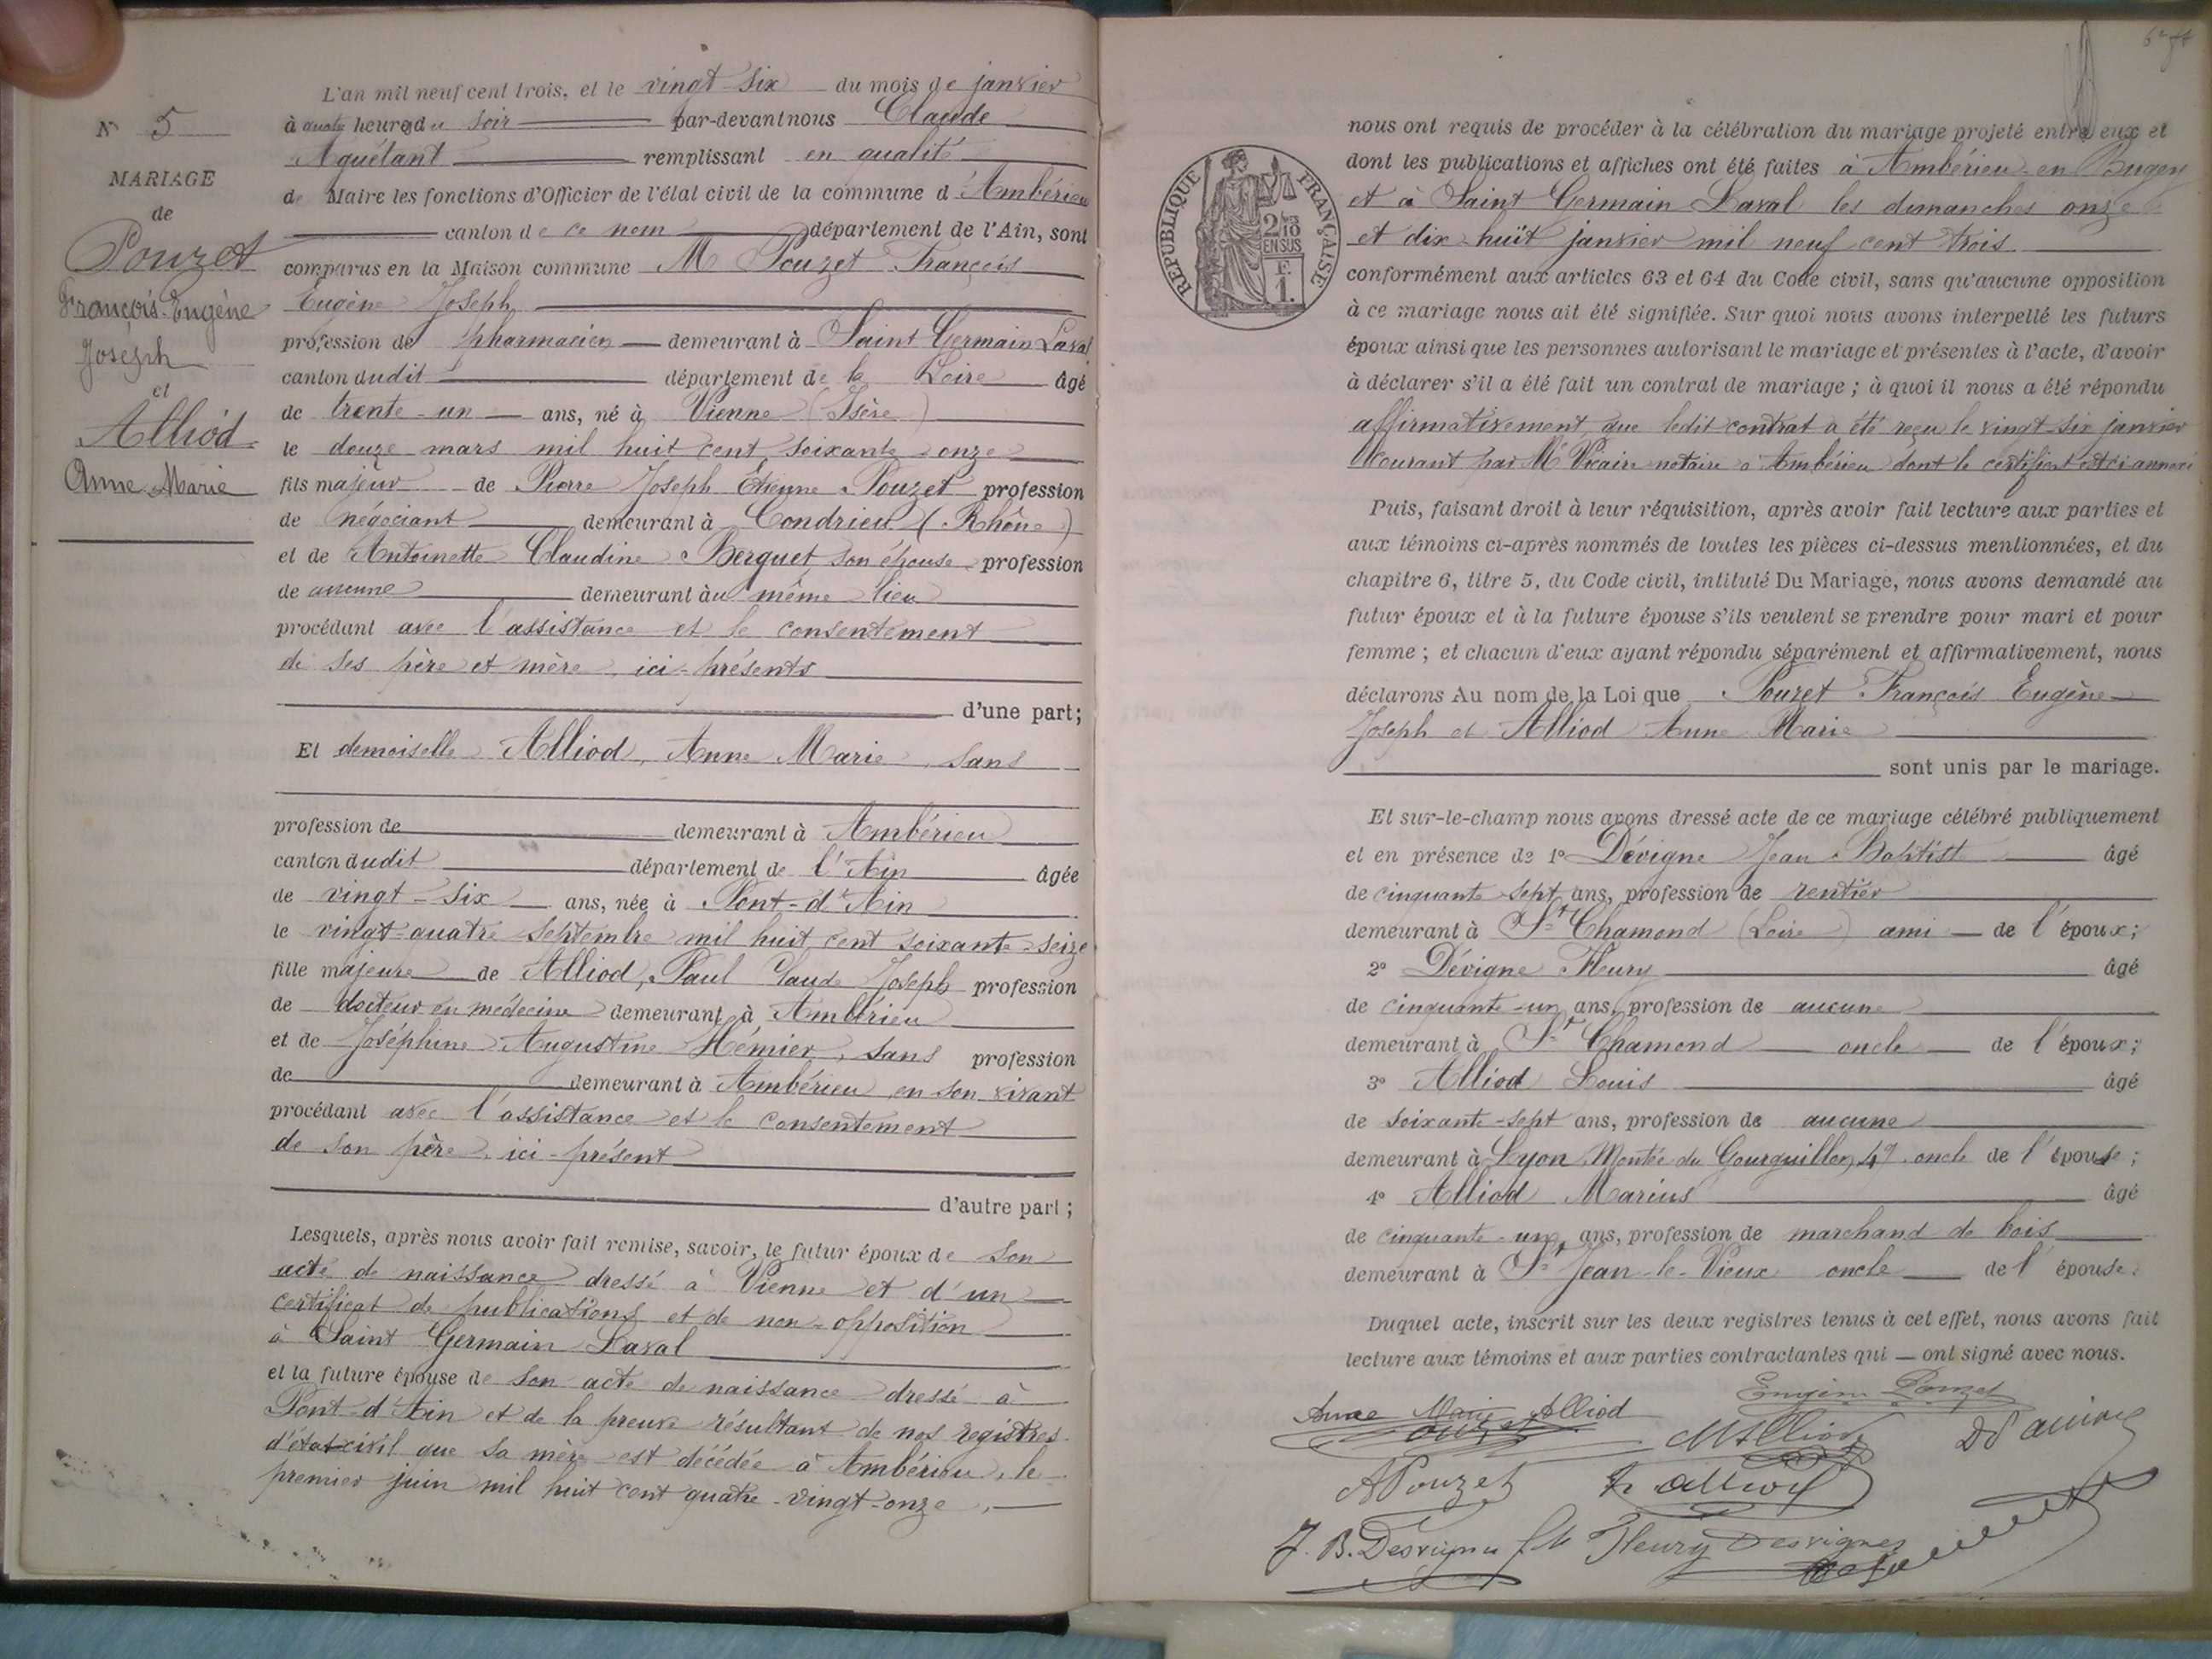 N° 5
MARIAGE
de
Pouzet
François-Eugène
Joseph
et
Alliod
Anne-Marie
L'an mil neuf cent trois, et le vingt-six du mois de janvier
à quatre heures du soir par-devant nous Claude
Aguétant remplissant en qualité
de Maire les fonctions d'Officier de l'état civil de la commune d'Ambérieu
canton de ce nom département de l'Ain, sont
comparus en la Maison commune M Pouzet François
Eugène Joseph
profession de pharmacien demeurant à Saint Germain Laval
canton dudit département de la Loire âgé
de trente-un ans, né à Vienne (Isère)
le douze mars mil huit cent soixante-onze
fils majeur de Pierre Joseph Etienne Pouzet profession
de négociant demeurant à Condrieu (Rhône)
et de Antoinette Claudine Berguet son épouse profession
de aucune demeurant au même lieu
procédant avec l'assistance et le consentement
de ses père et mère, ici-présents
d'une part;
Et demoiselle Alliod, Anne Marie, sans
profession de demeurant à Ambérieu
canton dudit département de l'Ain âgée
de vingt-six ans, née à Pont-d'Ain
le vingt-quatre septembre mil huit cent soixante-seize
fille majeure de Alliod, Paul Claude Joseph profession
de docteur en médecine demeurant à Ambérieu
et de Joséphine Augustine Hémier, sans profession
de demeurant à Ambérieu en son vivant
procédant avec l'assistance et le consentement
de son père, ici-présent
d'autre part;
Lesquels, après nous avoir fait remise, savoir, le futur époux de son
acte de naissance dressé à Vienne et d'un
certificat de publications et de non-opposition
à Saint Germain Laval
et la future épouse de son acte de naissance dressé à
Pont-d'Ain et de la preuve résultant de nos registres
d'état civil que sa mère est décédée à Ambérieu, le
premier juin mil huit cent quatre-vingt-onze,
RÉPUBLIQUE FRANÇAISE
2/10
EN SUS
F.
1.
nous ont requis de procéder à la célébration du mariage projeté entre eux et
dont les publications et affiches ont été faites à Ambérieu-en-Bugey
et à Saint Germain Laval les dimanches onze
et dix-huit janvier mil neuf cent trois
conformément aux articles 63 et 64 du Code civil, sans qu'aucune opposition
à ce mariage nous ait été signifiée. Sur quoi nous avons interpellé les futurs
époux ainsi que les personnes autorisant le mariage et présentes à l'acte, d'avoir
à déclarer s'il a été fait un contrat de mariage; à quoi il nous a été répondu
affirmativement, que ledit contrat a été reçu le vingt-six janvier
courant par Me Vicain notaire à Ambérieu dont le certificat est ci annexé
Puis, faisant droit à leur réquisition, après avoir fait lecture aux parties et
aux témoins ci-après nommés de toutes les pièces ci-dessus mentionnées, et du
chapitre 6, titre 5, du Code civil, intitulé Du Mariage, nous avons demandé au
futur époux et à la future épouse s'ils veulent se prendre pour mari et pour
femme; et chacun d'eux ayant répondu séparément et affirmativement, nous
déclarons Au nom de la Loi que Pouzet François Eugène
Joseph et Alliod Anne Marie
sont unis par le mariage.
Et sur-le-champ nous avons dressé acte de ce mariage célébré publiquement
et en présence de 1° Dévigne Jean Baptiste âgé
de cinquante-sept ans, profession de rentier
demeurant à St Chamond (Loire) ami de l'époux;
2° Dévigne Fleury âgé
de cinquante-un ans, profession de aucune
demeurant à St Chamond oncle de l'époux;
3° Alliod Louis âgé
de soixante-sept ans, profession de aucune
demeurant à Lyon Montée du Gourguillon, 47 oncle de l'épouse;
4° Alliod Marius âgé
de cinquante-un ans, profession de marchand de bois
demeurant à St Jean-le-Vieux oncle de l'épouse.
Duquel acte, inscrit sur les deux registres tenus à cet effet, nous avons fait
lecture aux témoins et aux parties contractantes qui ont signé avec nous.
Anne Marie Alliod Eugène Pouzet
Pouzet MAlliod
APouzet Alliod
J. B. Desvignes Fleury Desvignes